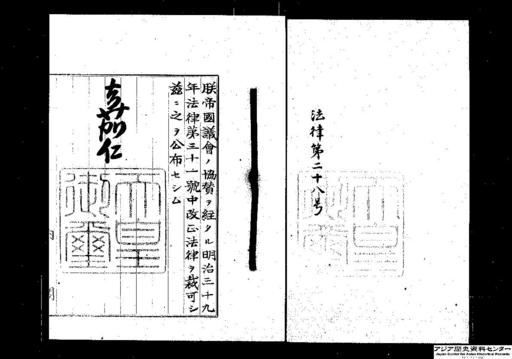 法律第二十八号
朕帝國議會ノ協賛ヲ経タル明治三十九
年法律第三十一號中改正法律ヲ裁可シ
茲ニ之ヲ公布セシム
嘉仁
天皇
御璽
内
閣
アジア歴史資料センター
Japan Center for Asian Historical Records